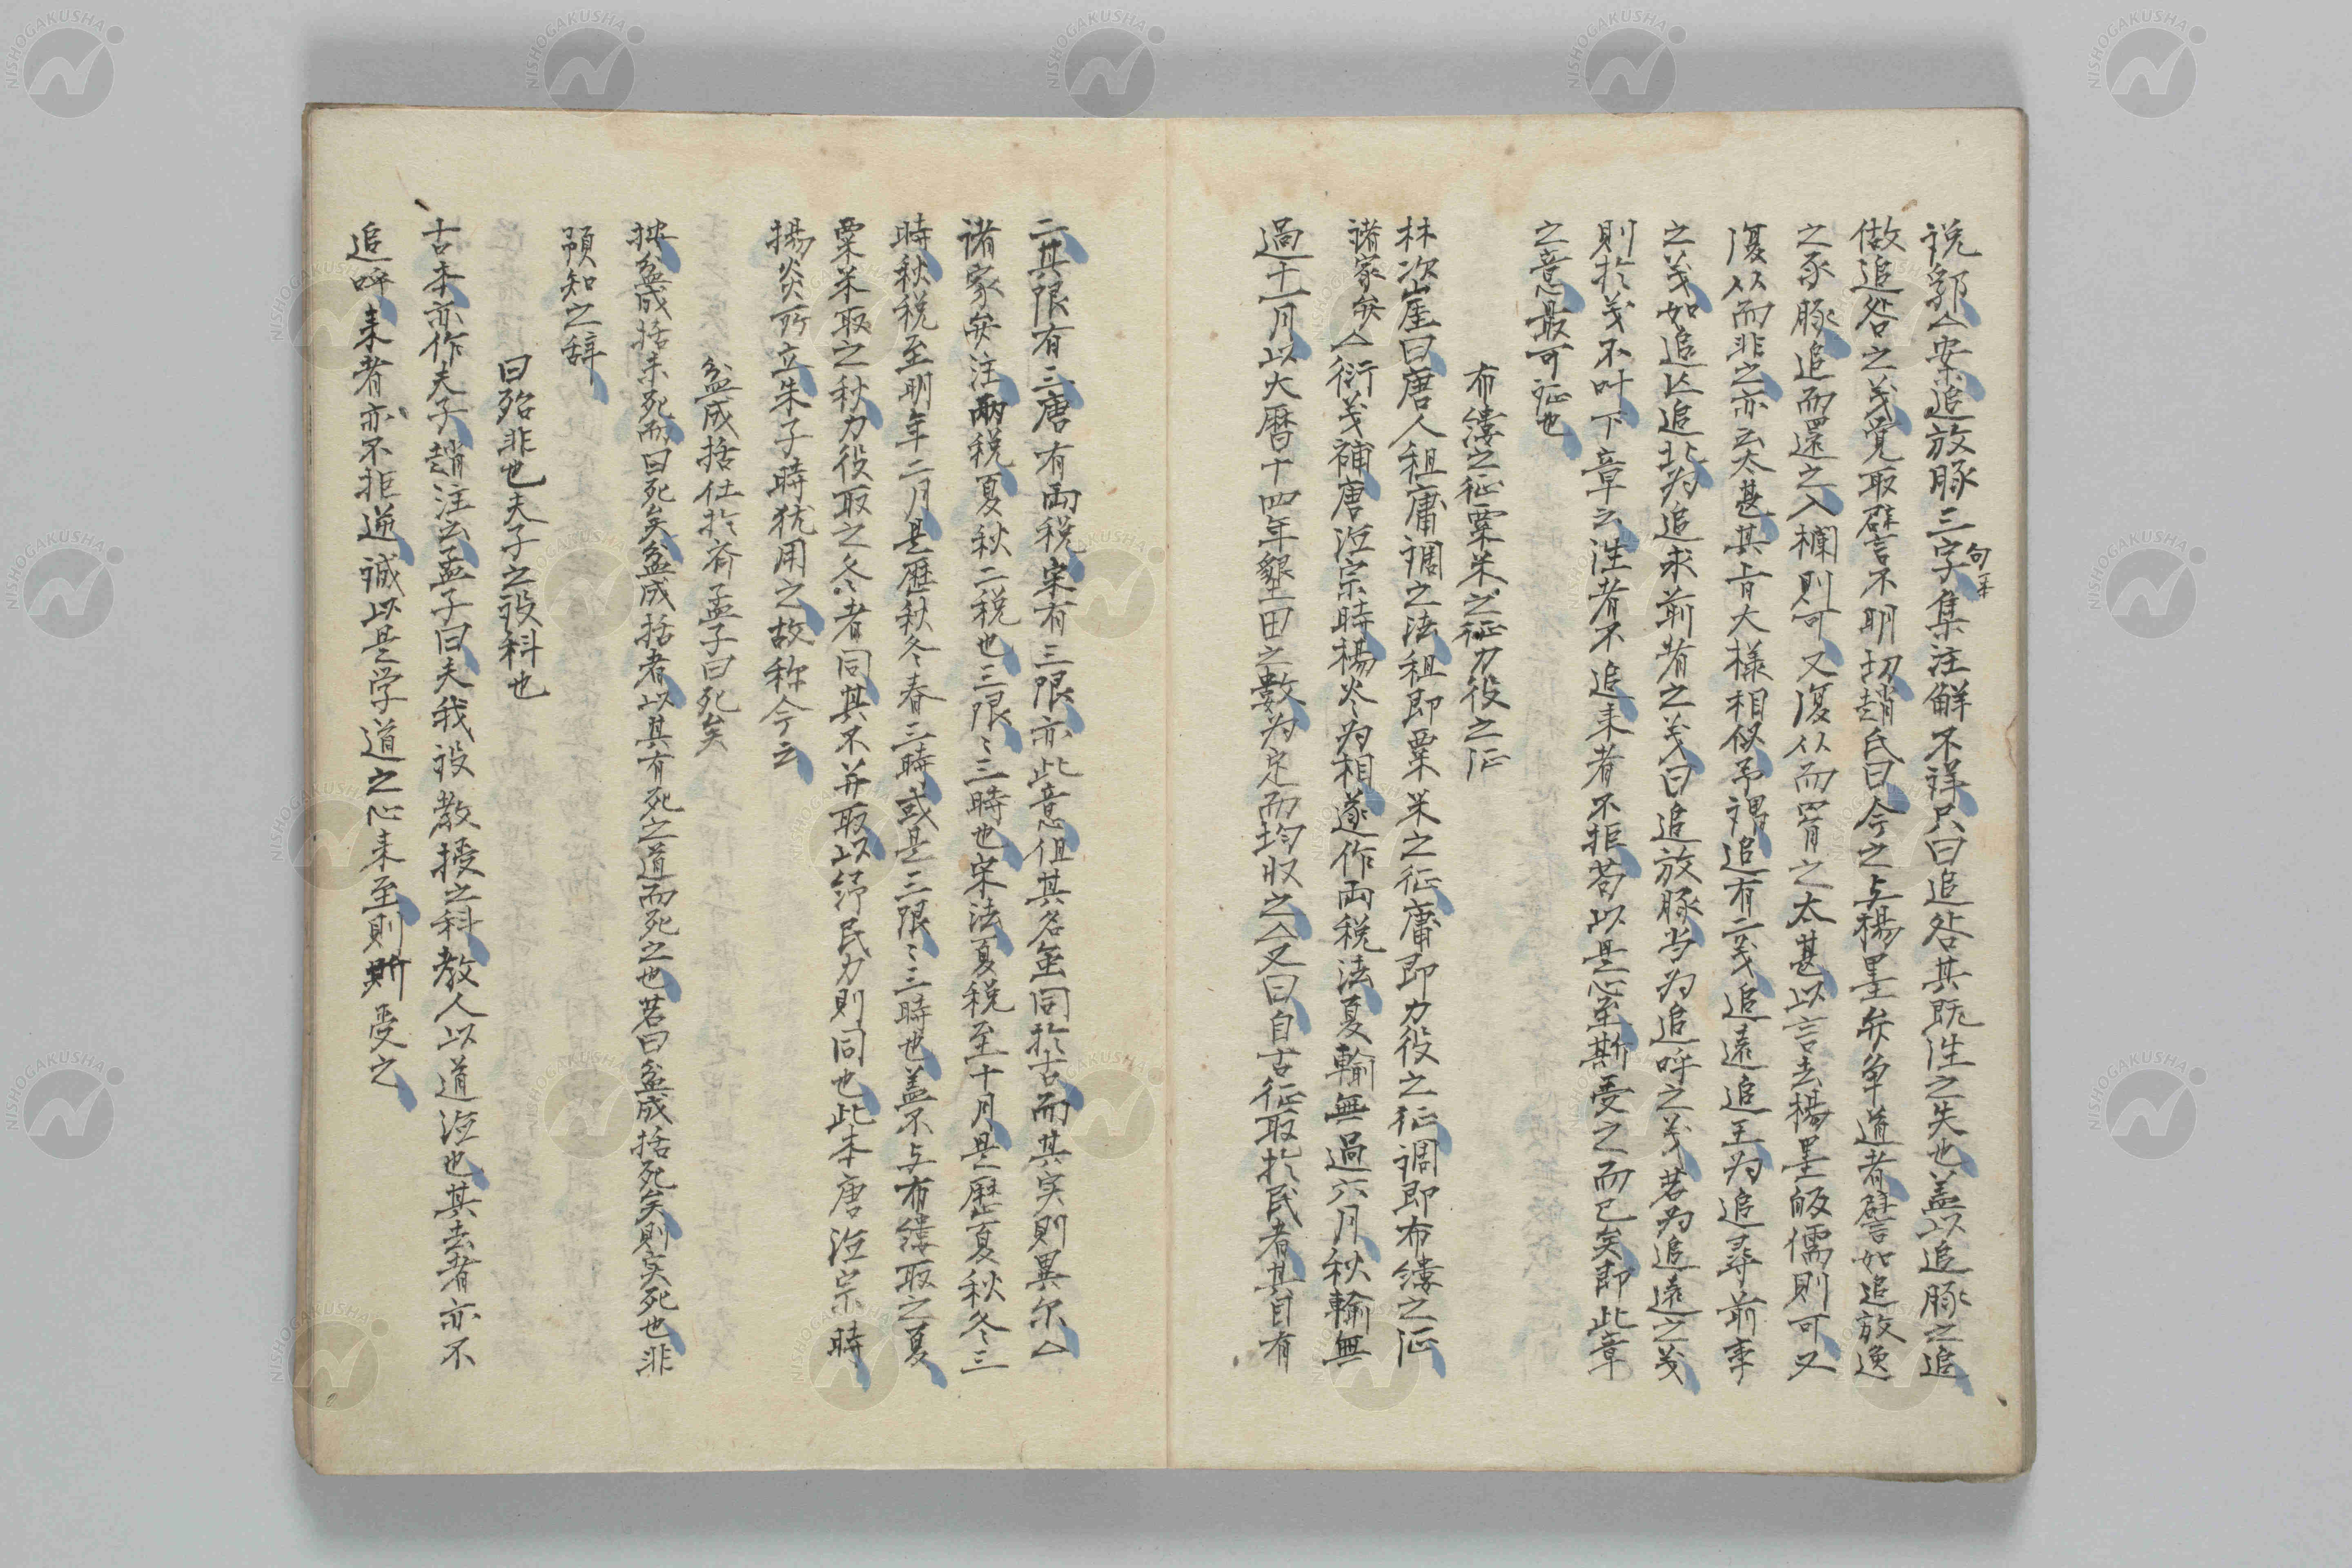 説鄭△案追放豚三字集注解不詳只曰追咎其既往之失也盖以追豚之追
句末
做追咎之義覚取譬言不明切趙氏曰今之与楊墨弁争道者譬如追放逸
之豕豚追而還之入欄則可又復从而罥之太甚以言去楊墨皈儒則可又
復从而非之亦云太甚其旨大様相似予謂追有二義追遠追王為追尋前事
之義如追亾追北為追求前者之義曰追放豚当為追呼之義若為追遠之義
則於義不叶下章云往者不追来者不拒苟以是心至斯受之而已矣即此章
之意最可征也
布縷之征粟米之征力役之征
林次崖曰唐人租庸調之法租即粟米之征庸即力役之征調即布縷之征
諸家弁△衍義補唐徳宗時楊炎為相遂作両税法夏輸無過六月秋輸無
過十一月以大暦十四年墾田之数為定而均収之△又曰自古征取於民者其目有
二其限有三唐有両税宋有三限亦此意但其名虽同於古而其实則異尔△
諸家弁注両税夏秋二税也三限〻三時也宋法夏税至十月是歴夏秋冬三
時秋税至明年二月是歴秋冬春三時或是三限〻三時也盖不与布縷取之夏
粟米取之秋力役取之冬者同其不并取以紓民力則同也此本唐徳宗時
楊炎所立朱子時犹用之故称今云
盆成括仕於斉孟子曰死矣
按盆成括未死而曰死矣盆成括者以其有死之道而死之也若曰盆成括死矣則实死也非
預知之辞
曰殆非也夫子之設科也
古本亦作夫子趙注云孟子曰夫我設教授之科教人以道徳也其去者亦不
追呼来者亦不拒逆誠以是学道之心来至則斯受之